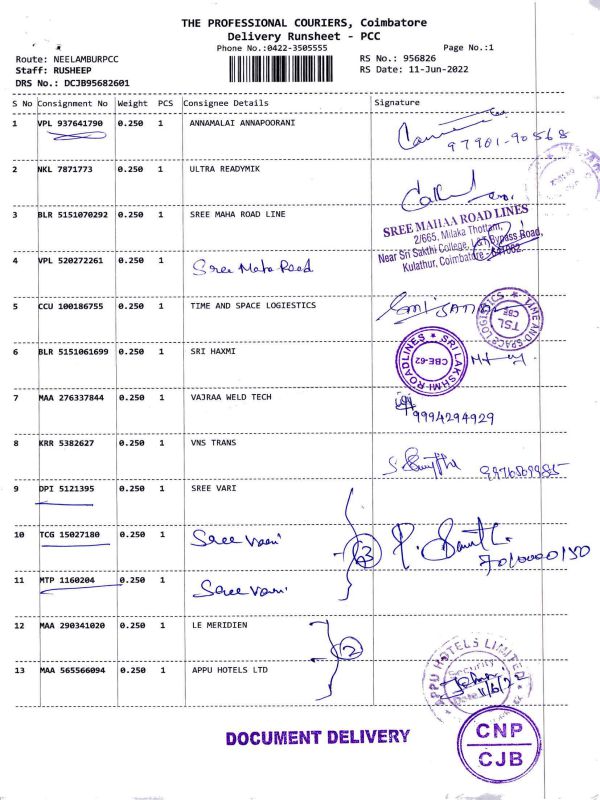 THE PROFESSIONAL COURIERS, Coimbatore
Delivery Runsheet - PCC
Phone No.:0422-3505555
Page No.:1
Route: NEELAMBURPCC
RS No.: 956826
Staff: RUSHEEP
RS Date: 11-Jun-2022
DRS No.: DCJB95682601
S No Consignment No Weight PCS Consignee Details Signature
1 VPL 937641790 0.250 1 ANNAMALAI ANNAPOORANI
97901-90568
2 NKL 7871773 0.250 1 ULTRA READYMIK
3 BLR 5151070292 0.250 1 SREE MAHA ROAD LINE
SREE MAHAA ROAD LINES
2/665, Milaka Thottam,
Near Sri Sakthi College, L&T Bypass Road,
Kulathur, Coimbatore - 641062.
4 VPL 520272261 0.250 1 Sree Maha Road
5 CCU 100186755 0.250 1 TIME AND SPACE LOGIESTICS
TIME AND SPACE LOGISTICS
TSL
CBE
6 BLR 5151061699 0.250 1 SRI HAXMI
SRI LAKSHMI ROADLINES
CBE-62
7 MAA 276337844 0.250 1 VAJRAA WELD TECH
9994294929
8 KRR 5382627 0.250 1 VNS TRANS
9 DPI 5121395 0.250 1 SREE VARI
10 TCG 15027180 0.250 1 Sree Vari
3
11 MTP 1160204 0.250 1 Sree Vari
12 MAA 290341020 0.250 1 LE MERIDIEN
2
13 MAA 565566094 0.250 1 APPU HOTELS LTD
APPU HOTELS LIMITED
Security
11/6/22
DOCUMENT DELIVERY
CNP
CJB